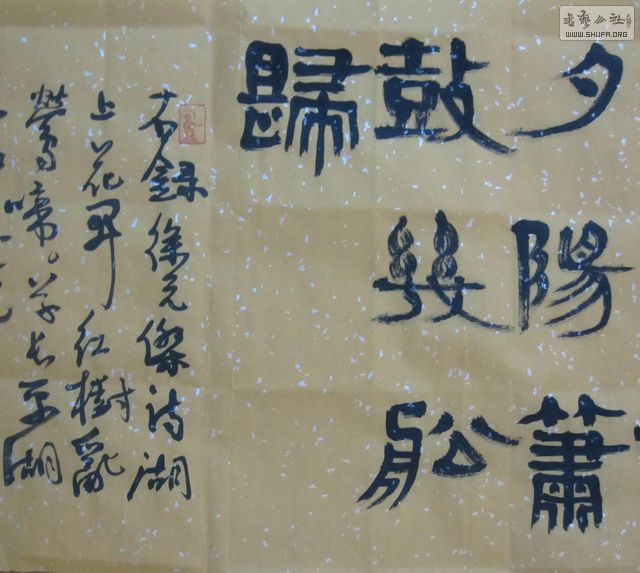 書藝公社
WWW.SHUFA.ORG
夕陽蕭
鼓幾舩
歸
右錄徐元傑詩湖
上花開紅樹亂
鶯啼。草長平湖